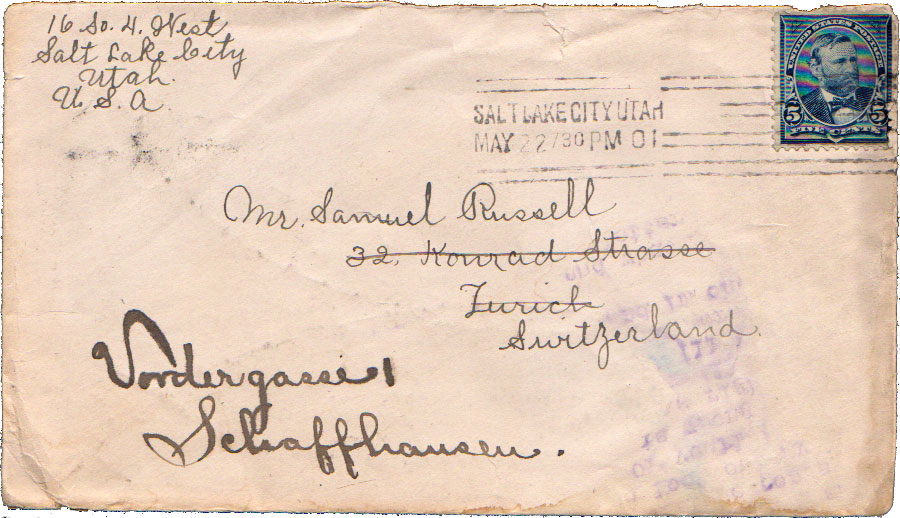 16 So. 4. West
Salt Lake City
Utah.
U. S. A.
UNITED STATES POSTAGE
5 5
SALT LAKE CITY UTAH
MAY 22 730 PM 01
Mr. Samuel Russell
32. Konrad Strasse
Zurich
Switzerland.
Vordergasse 1
Schaffhausen.